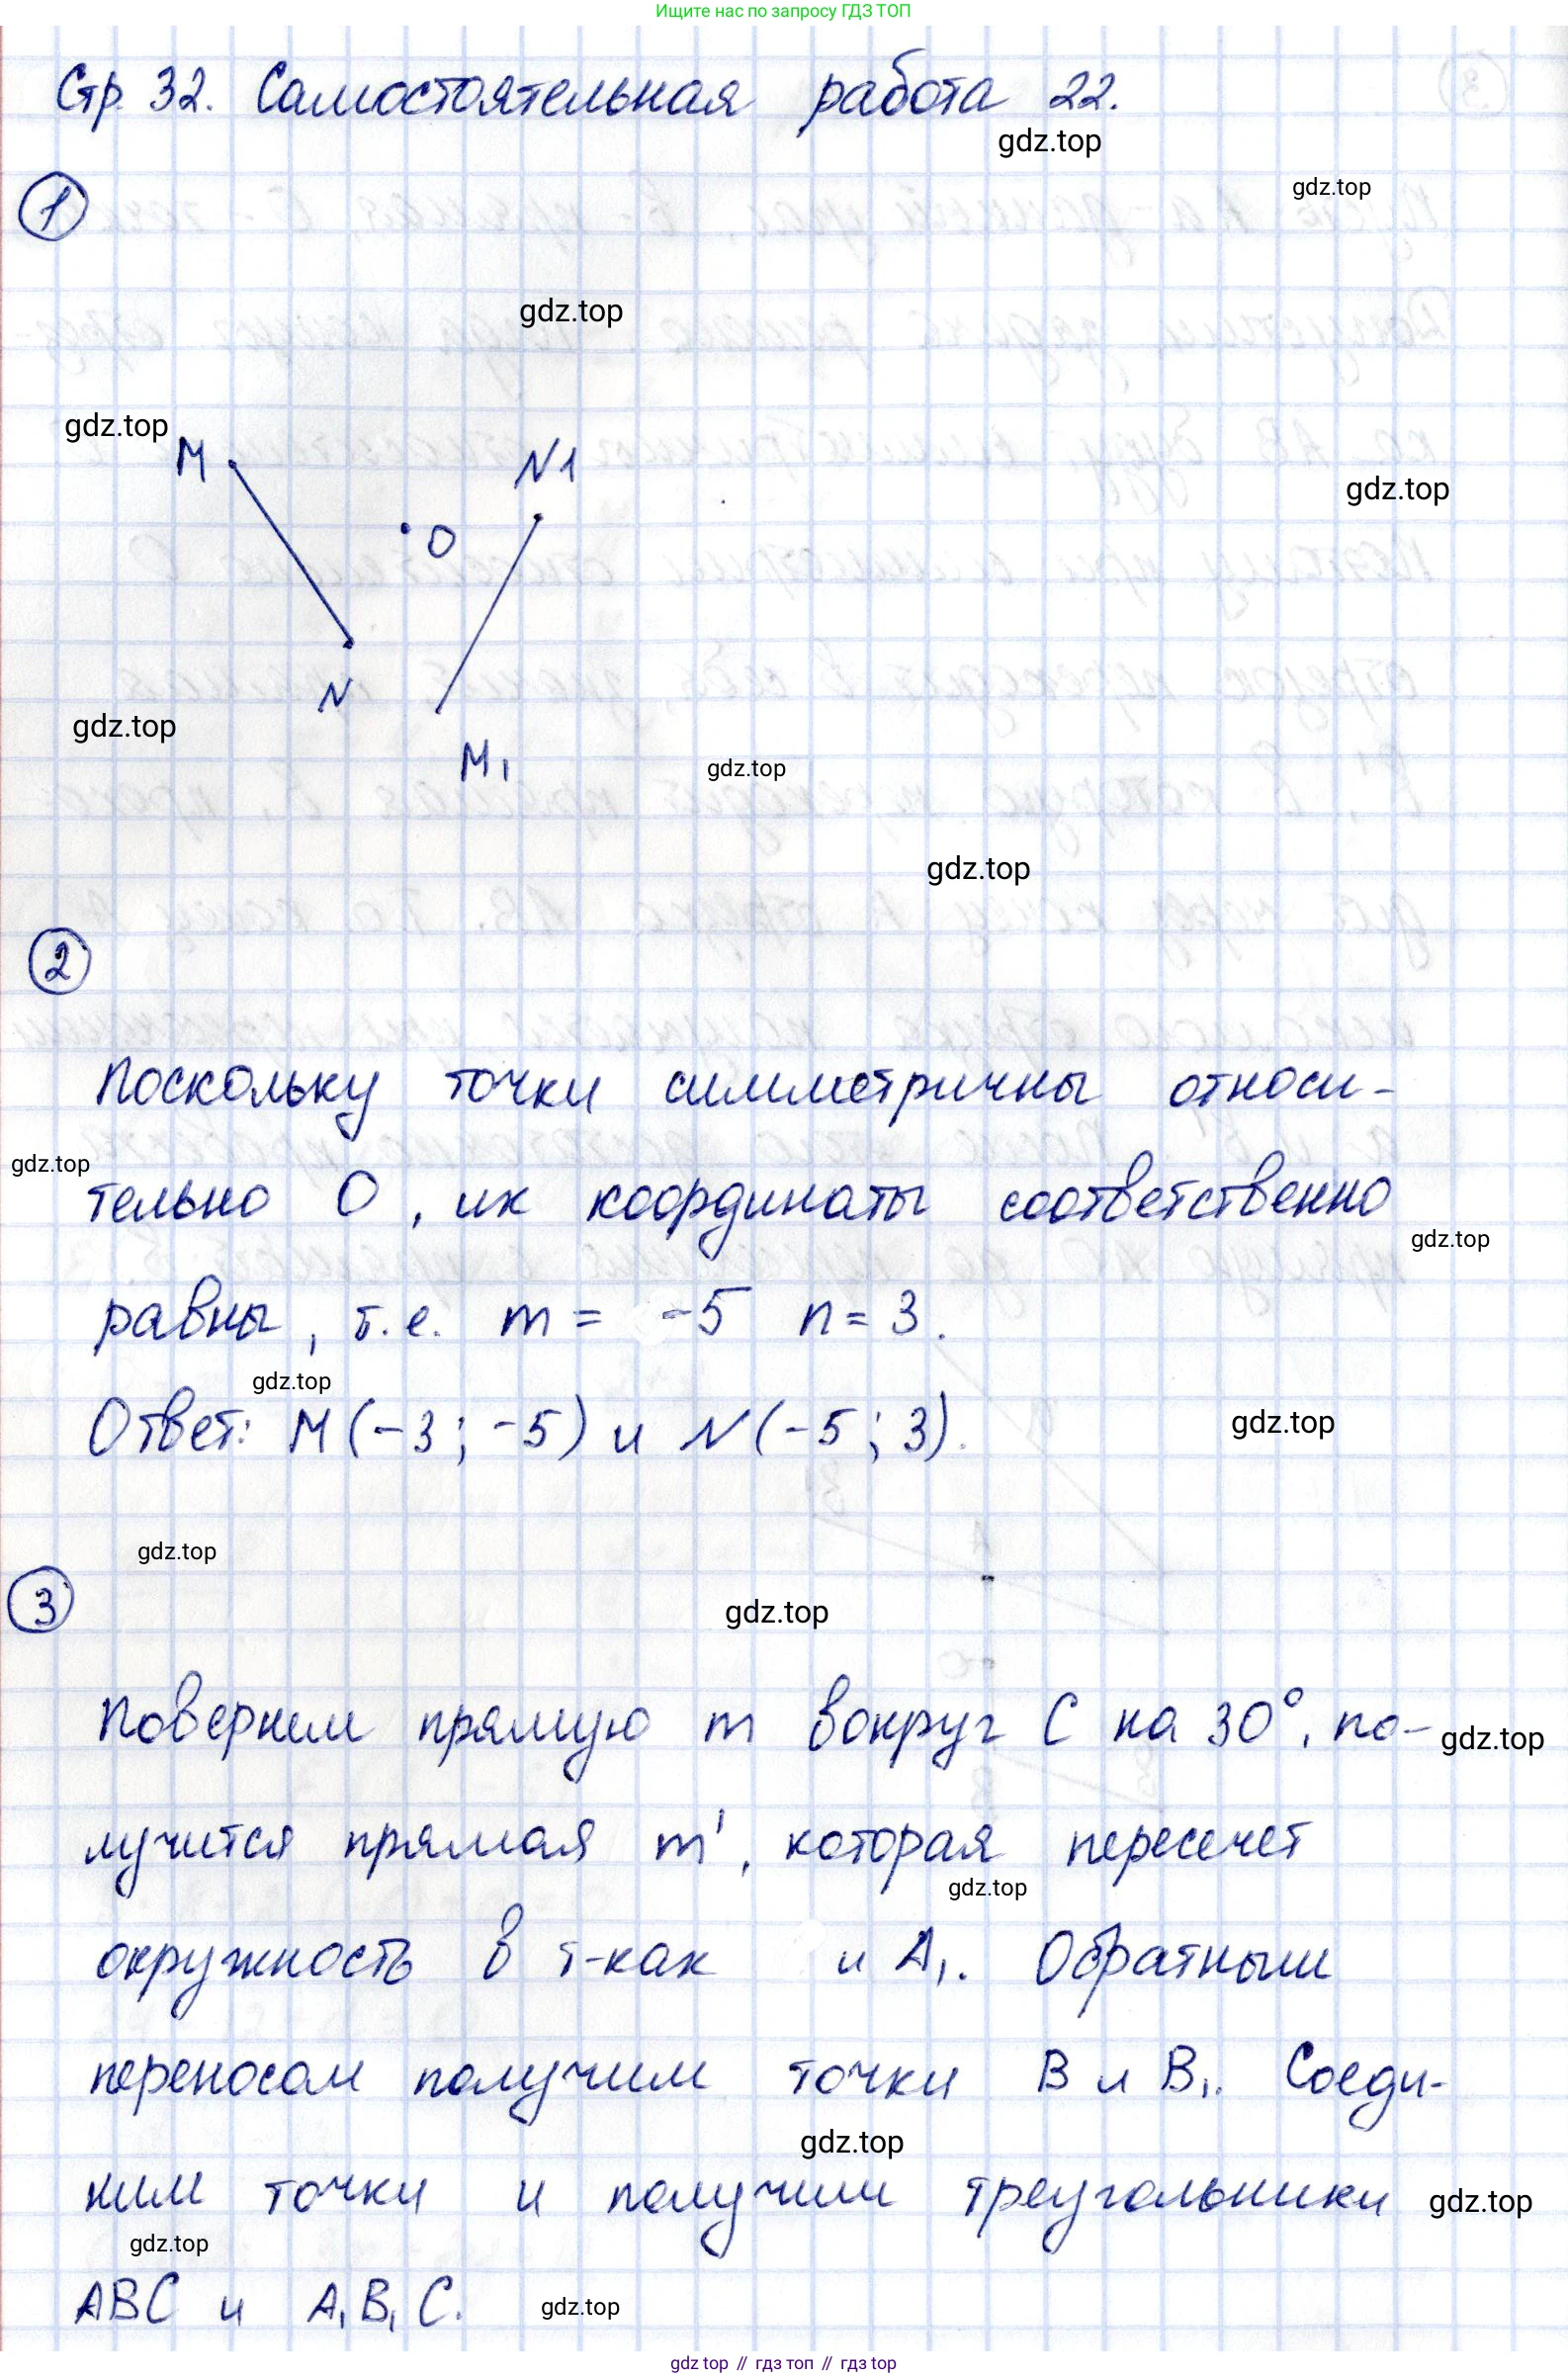 Ищите нас по запросу ГДЗ ТОП
Стр. 32. Самостоятельная работа 22.
gdz.top
gdz.top
1
gdz.top
gdz.top
M
N1
gdz.top
O
N
gdz.top
M1
gdz.top
gdz.top
2
Поскольку точки симметричны относи-
gdz.top
тельно О, их координаты соответственно
gdz.top
равны, т.е. m = -5 n = 3.
gdz.top
Ответ: M(-3; -5) и N(-5; 3).
gdz.top
gdz.top
3
gdz.top
Повернем прямую m вокруг С на 30°, по-
gdz.top
лучится прямая m', которая пересечет
gdz.top
окружность в т-ках и A1. Обратным
переносом получим точки B и B1. Соеди-
gdz.top
ним точки и получим треугольники
gdz.top
gdz.top
ABC и A1B1C.
gdz.top
gdz top // гдз топ // гдз top